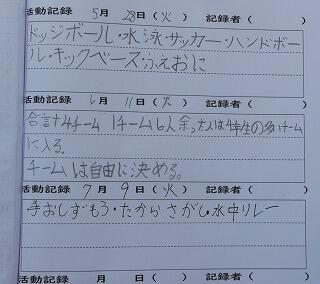 活動記録 5月 28日(火) 記録者( )
ドッジボール・水泳・サッカー・ハンドボー
ル・キックベース・ふえおに
活動記録 6月 11日(火) 記録者( )
合言十4チーム 1チーム6人 余った人は4年生の多いチーム
に入る。
チームは自由に決める。
活動記録 7月 9日(火) 記録者( )
手おしずもう・たからさがし・水中リレー
活動記録 月 日( ) 記録者( )